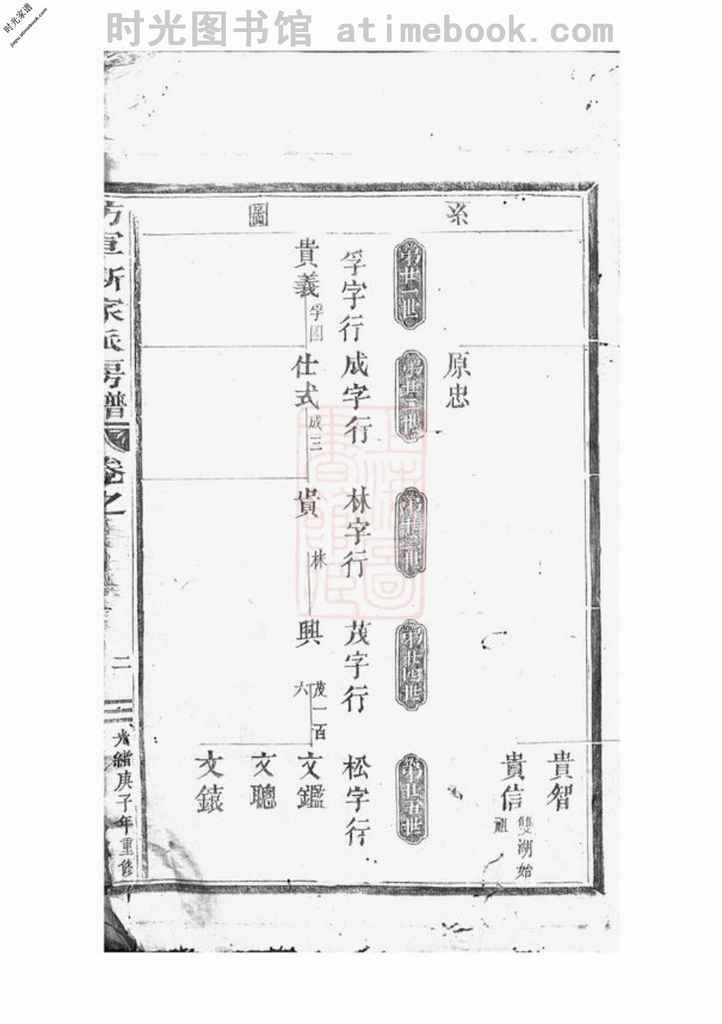 时光图书馆 atimebook.com
时光家谱
jiapu.atimebook.com
系圖
貴智
貴信 雙湖始祖
原忠
第廿一世
第廿二世
第廿三世
第廿四世
第廿五世
孚字行
成字行
林字行
茂字行
松字行
貴義 孚因
仕式 成三
貴 林
興 茂一百六
文鑑
文聰
文鎱
家派房譜
卷之
二
光緒庚子年重修